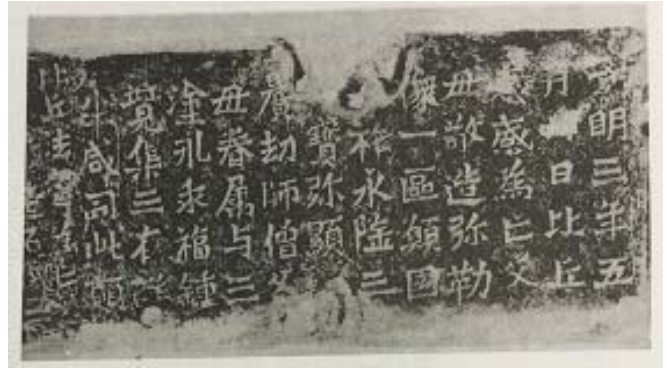 明三年五
月日比丘
惠感為亡父
母敬造弥勒
像一區願國
祚永隆三
寶弥顯
曠劫師僧父
母眷属与三
塗永乖福鍾
覓集三有
生咸同此願
比丘